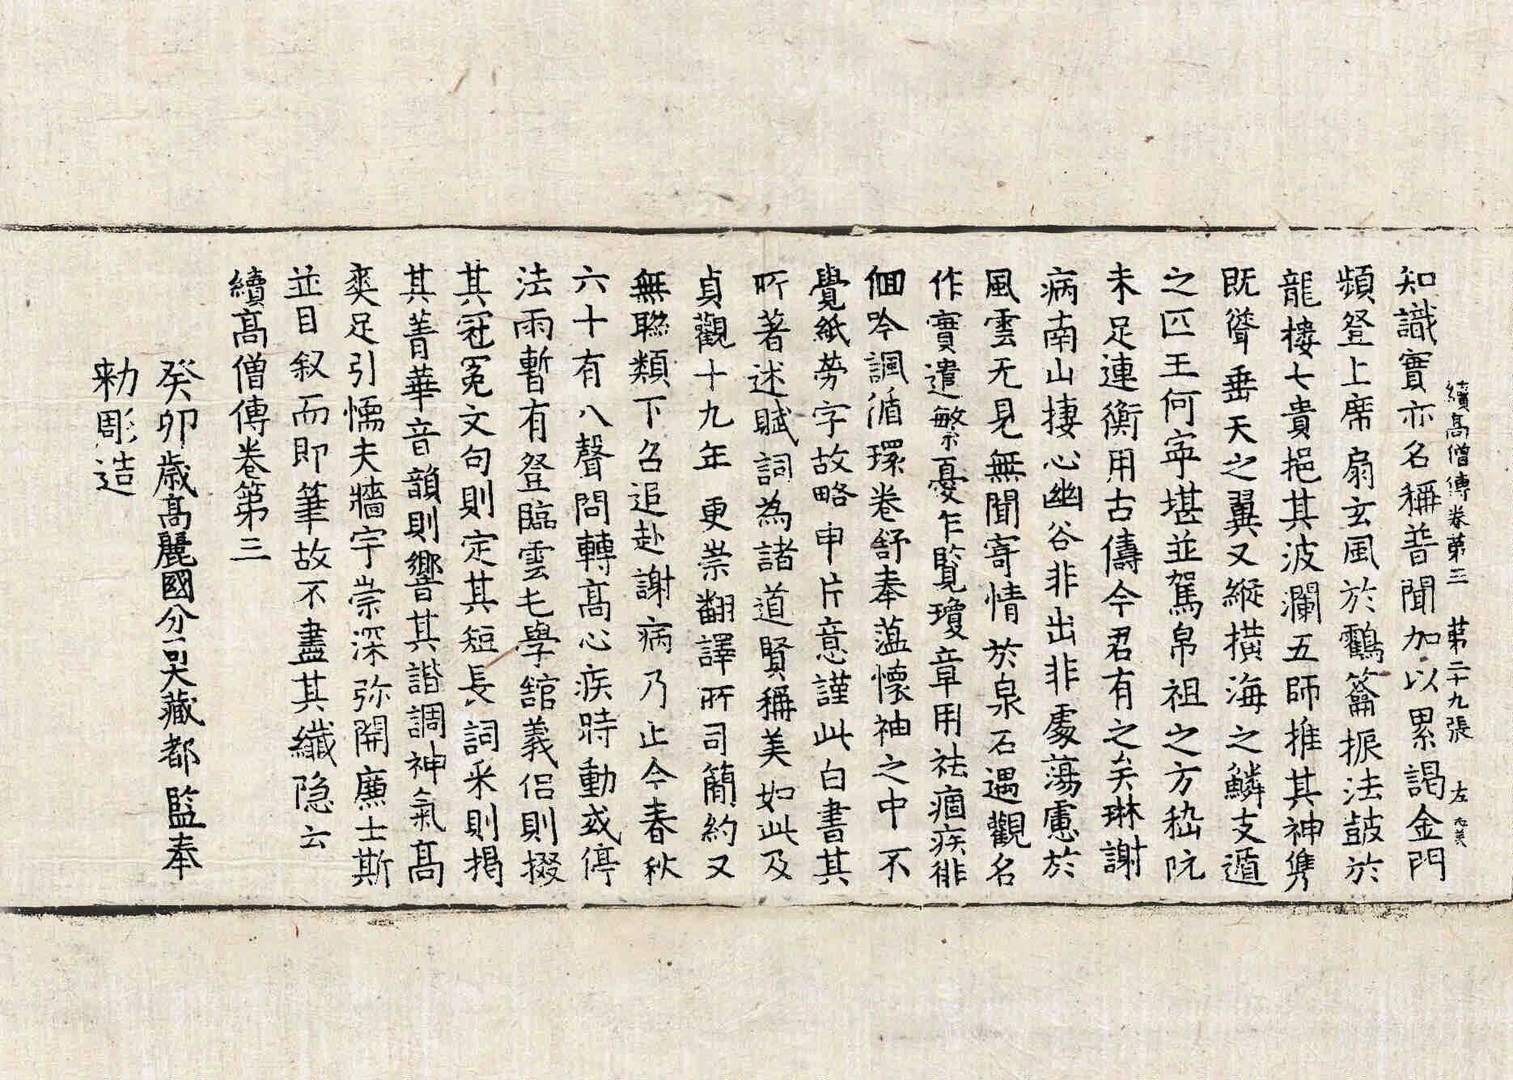 續高僧傳卷第三 第二十九張 左
知識實亦名稱普聞加以累謁金門
頻登上席扇玄風於鶴籥振法鼓於
龍樓七貴挹其波瀾五師推其神雋
既聳垂天之翼又縱橫海之鱗支遁
之匹王何寧堪並駕帛祖之方嵇阮
未足連衡用古儔今君有之矣琳謝
病南山棲心幽谷非出非處蕩慮於
風雲无見無聞寄情於泉石遇觀名
作實遣繁憂乍覽瓊章用祛痼疾徘
佪吟諷循環卷舒奉蘊懷袖之中不
覺紙勞字故略申片意謹此白書其
所著述賦詞為諸道賢稱美如此及
貞觀十九年更崇翻譯所司簡約又
無聯類下召追赴謝病乃止今春秋
六十有八聲問轉高心疾時動或停
法雨暫有登臨雲屯學館義侶則掇
其冠冕文句則定其短長詞釆則揭
其菁華音韻則響其諧調神氣高
爽足引懦夫牆宇崇深弥開廉士斯
並目叙而即筆故不盡其纖隐云
續高僧傳卷第三
癸卯歲高麗國分司大藏都監奉
勑彫造